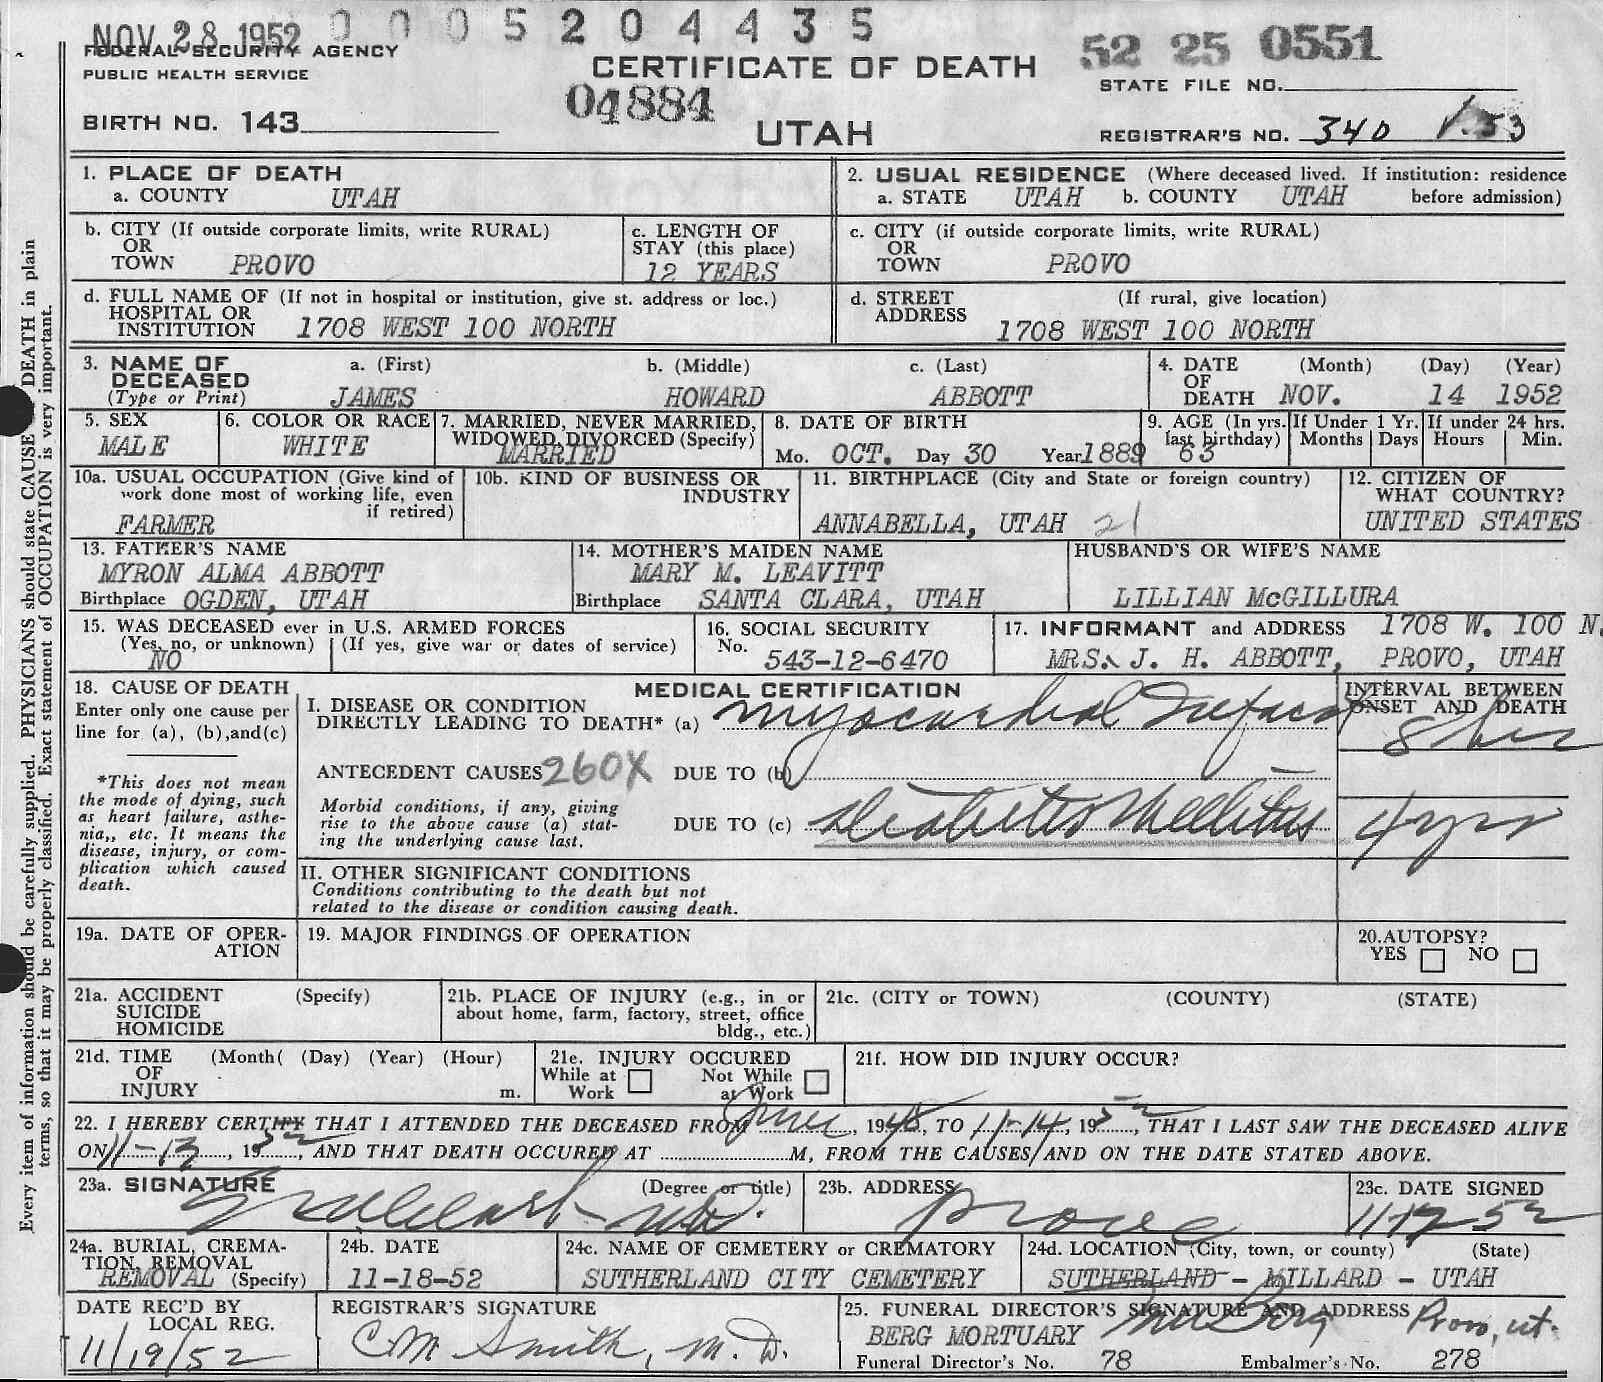 NOV 28 1952 0005204435
FEDERAL SECURITY AGENCY
PUBLIC HEALTH SERVICE
CERTIFICATE OF DEATH
52 25 0551
STATE FILE NO.
04884
BIRTH NO. 143
UTAH
REGISTRAR'S NO. 340
1. PLACE OF DEATH
a. COUNTY UTAH
2. USUAL RESIDENCE (Where deceased lived. If institution: residence
a. STATE UTAH b. COUNTY UTAH before admission)
b. CITY (If outside corporate limits, write RURAL)
OR
TOWN PROVO
c. LENGTH OF
STAY (this place)
12 YEARS
c. CITY (if outside corporate limits, write RURAL)
OR
TOWN PROVO
d. FULL NAME OF (If not in hospital or institution, give st. address or loc.)
HOSPITAL OR
INSTITUTION 1708 WEST 100 NORTH
d. STREET (If rural, give location)
ADDRESS
1708 WEST 100 NORTH
3. NAME OF
DECEASED
(Type or Print)
a. (First)
JAMES
b. (Middle)
HOWARD
c. (Last)
ABBOTT
4. DATE (Month) (Day) (Year)
OF
DEATH NOV. 14 1952
5. SEX
MALE
6. COLOR OR RACE
WHITE
7. MARRIED, NEVER MARRIED,
WIDOWED, DIVORCED (Specify)
MARRIED
8. DATE OF BIRTH
Mo. OCT. Day 30 Year 1889
9. AGE (In yrs.
last birthday)
63
If Under 1 Yr.
Months Days
If under 24 hrs.
Hours Min.
10a. USUAL OCCUPATION (Give kind of
work done most of working life, even
if retired)
FARMER
10b. KIND OF BUSINESS OR
INDUSTRY
11. BIRTHPLACE (City and State or foreign country)
ANNABELLA, UTAH 21
12. CITIZEN OF
WHAT COUNTRY?
UNITED STATES
13. FATHER'S NAME
MYRON ALMA ABBOTT
Birthplace OGDEN, UTAH
14. MOTHER'S MAIDEN NAME
MARY M. LEAVITT
Birthplace SANTA CLARA, UTAH
HUSBAND'S OR WIFE'S NAME
LILLIAN McGILLURA
15. WAS DECEASED ever in U.S. ARMED FORCES
(Yes, no, or unknown) (If yes, give war or dates of service)
NO
16. SOCIAL SECURITY
No.
543-12-6470
17. INFORMANT and ADDRESS 1708 W. 100 N.
MRS. J. H. ABBOTT, PROVO, UTAH
18. CAUSE OF DEATH
Enter only one cause per
line for (a), (b),and(c)
*This does not mean
the mode of dying, such
as heart failure, asthe-
nia,, etc. It means the
disease, injury, or com-
plication which caused
death.
MEDICAL CERTIFICATION
I. DISEASE OR CONDITION
DIRECTLY LEADING TO DEATH* (a) Myocardial Infarct
ANTECEDENT CAUSES 260X DUE TO (b)
Morbid conditions, if any, giving
rise to the above cause (a) stat-
ing the underlying cause last.
DUE TO (c) Diabetes Mellitus
INTERVAL BETWEEN
ONSET AND DEATH
8 hrs
4 yrs
II. OTHER SIGNIFICANT CONDITIONS
Conditions contributing to the death but not
related to the disease or condition causing death.
19a. DATE OF OPER-
ATION
19. MAJOR FINDINGS OF OPERATION
20.AUTOPSY?
YES NO
21a. ACCIDENT (Specify)
SUICIDE
HOMICIDE
21b. PLACE OF INJURY (e.g., in or
about home, farm, factory, street, office
bldg., etc.)
21c. (CITY or TOWN) (COUNTY) (STATE)
21d. TIME (Month( (Day) (Year) (Hour)
OF
INJURY m.
21e. INJURY OCCURED
While at Not While
Work at Work
21f. HOW DID INJURY OCCUR?
22. I HEREBY CERTIFY THAT I ATTENDED THE DECEASED FROM June, 1948, TO 11-14, 1952, THAT I LAST SAW THE DECEASED ALIVE
ON 11-13, 1952, AND THAT DEATH OCCURED AT M, FROM THE CAUSES AND ON THE DATE STATED ABOVE.
23a. SIGNATURE (Degree or title)
MD.
23b. ADDRESS
Provo
23c. DATE SIGNED
11-17-52
24a. BURIAL, CREMA-
TION, REMOVAL
REMOVAL (Specify)
24b. DATE
11-18-52
24c. NAME OF CEMETERY or CREMATORY
SUTHERLAND CITY CEMETERY
24d. LOCATION (City, town, or county) (State)
SUTHERLAND - MILLARD - UTAH
DATE REC'D BY
LOCAL REG.
11/19/52
REGISTRAR'S SIGNATURE
C.M. Smith, M.D.
25. FUNERAL DIRECTOR'S SIGNATURE AND ADDRESS
BERG MORTUARY Berg Provo, ut.
Funeral Director's No. 78 Embalmer's No. 278
Every item of information should be carefully supplied. PHYSICIANS should state CAUSE DEATH in plain
terms, so that it may be properly classified. Exact statement of OCCUPATION is very important.